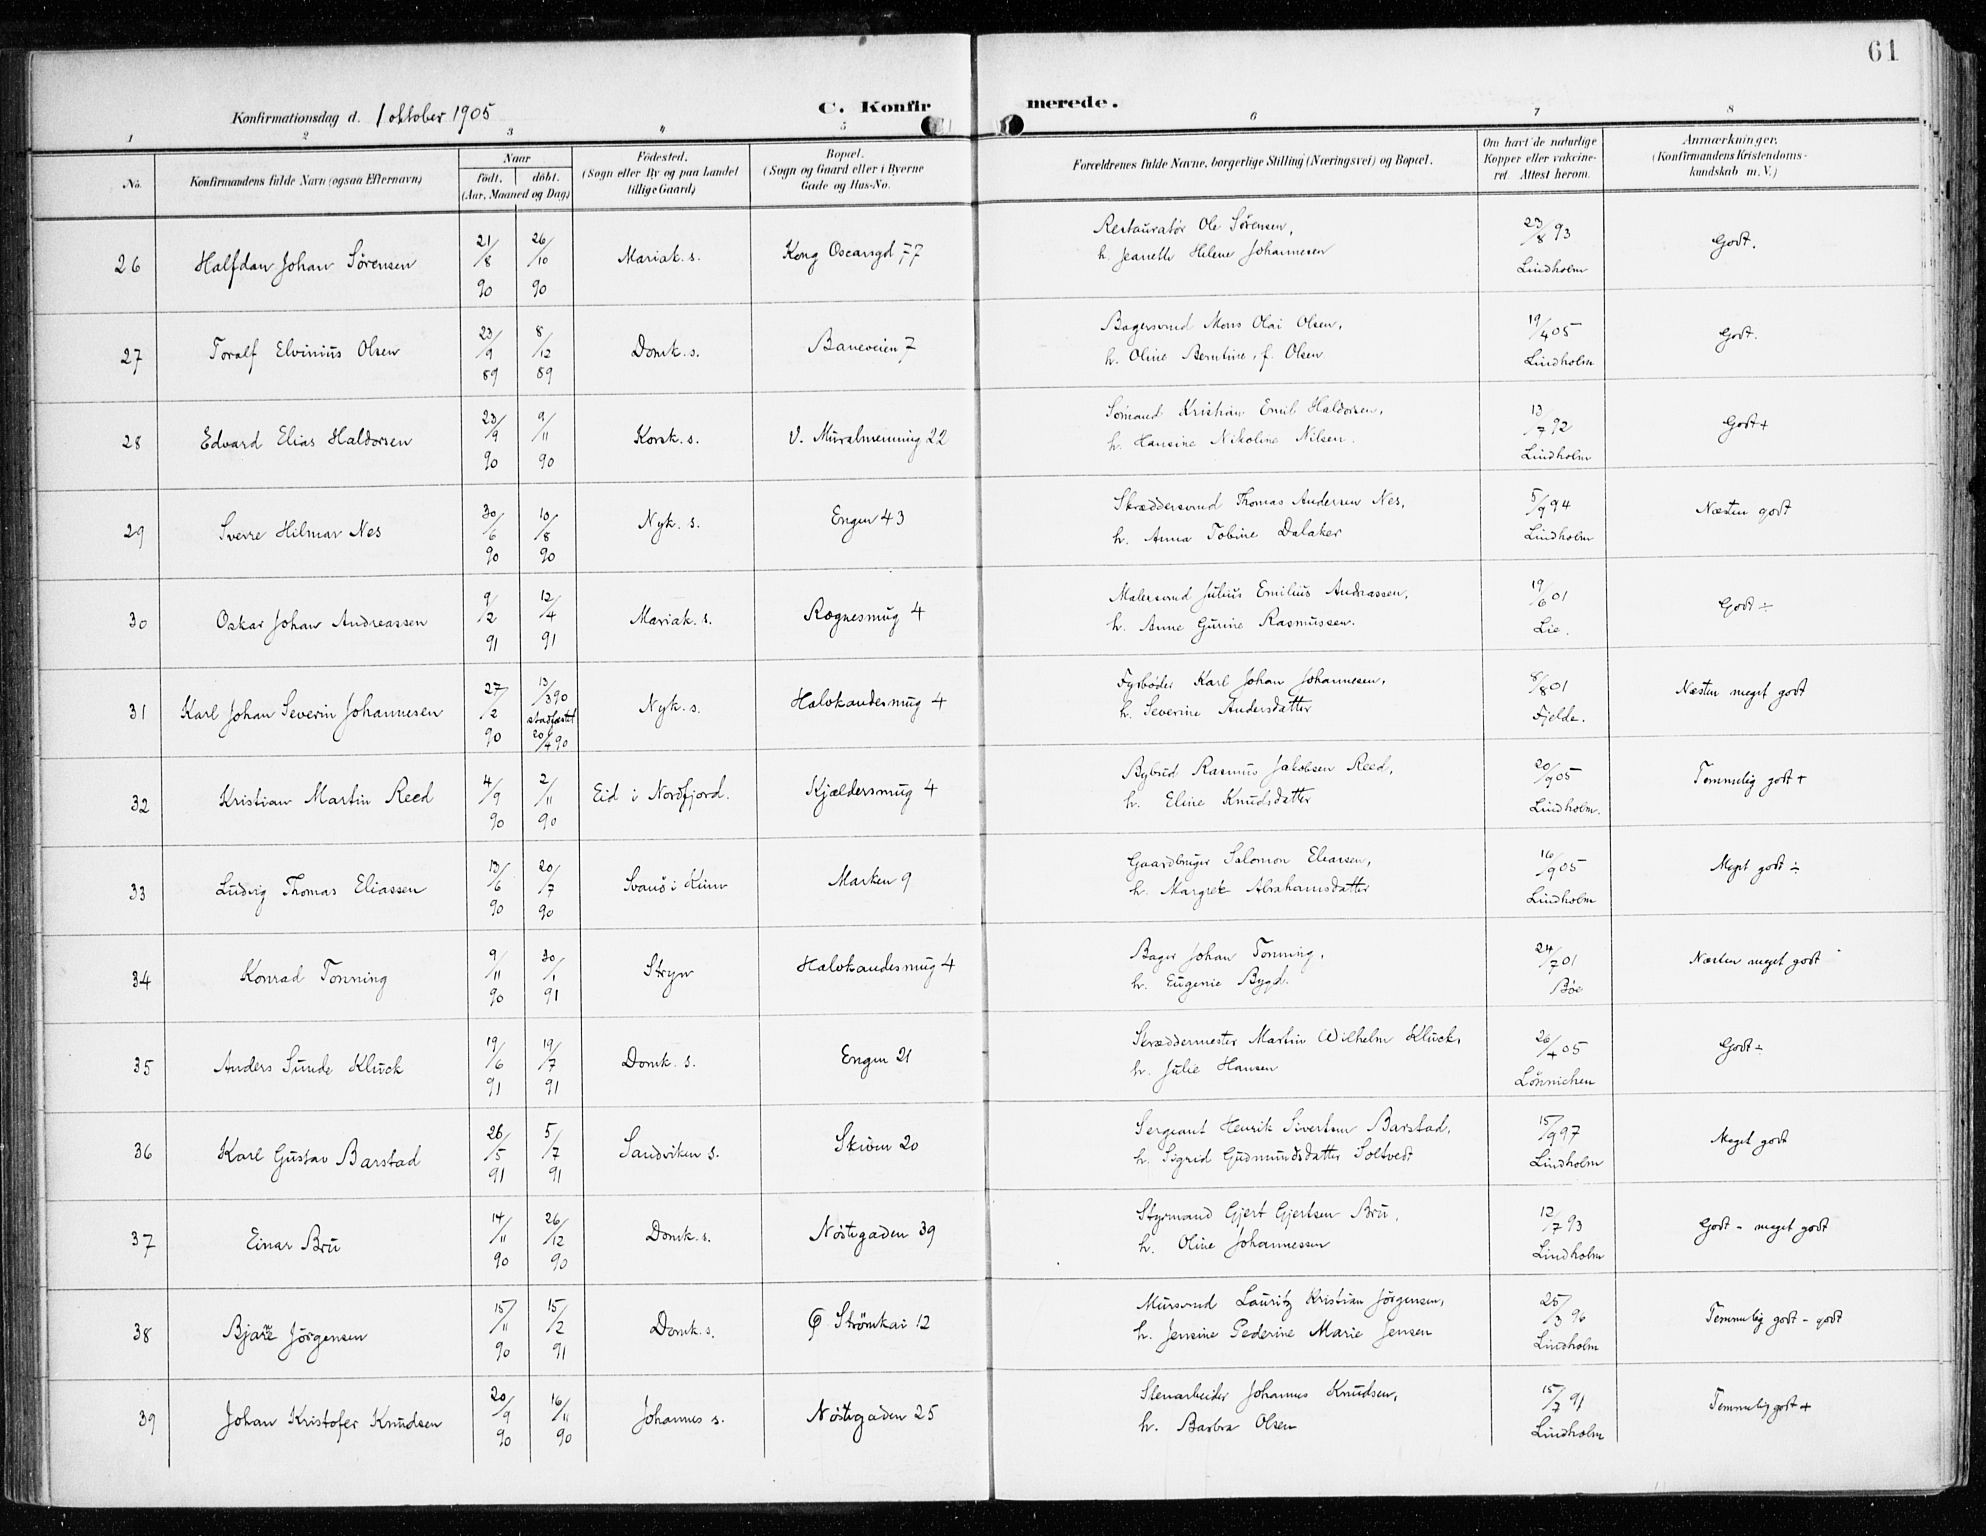 61
Konfirmationsdag d. 1 oktober 1905
C. Konfir merede.
1 2 3 4 5 6 7 8
No.
Konfirmandens fulde Navn (ogsaa Efternavn)
Naar
födt. döbt.
(Aar, Maaned og Dag)
Födested.
(Sogn eller By og paa Landet
tillige Gaard)
Bopæl.
(Sogn og Gaard eller i Byerne
Gade og Hus-No.
Forældrenes fulde Navne, borgerlige Stilling (Næringsvei) og Bopæl.
Om havt de naturlige
Kopper eller vakcine-
ret. Attest herom.
Anmærkninger.
(Konfirmandens Kristendoms-
kundskab m. V.)
26 Halfdan Johan Sörensen 21/8 90 26/10 90 Mariak. s. Kong Oscarsgd 77
Restauratør Ole Sörensen,
h. Jeanette Helene Johannesen
23/8 93
Lindholm
Godt.
27 Toralf Elvinius Olsen 23/9 89 8/12 89 Domk. s. Baneveien 7
Bagersvend Mons Olai Olsen,
h. Oline Berntine, f. Olsen
19/4 05
Lindholm
Godt.
28 Edvard Elias Haldorsen 23/9 90 9/11 90 Korsk. s. V. Muralmenning 22
Sömand Kristian Emil Haldorsen,
h. Hansine Nikoline Nilsen.
13/7 92
Lindholm
Godt +
29 Sverre Hilmar Nes 30/6 90 10/8 90 Nyk. s. Engen 43
Skræddersvend Thomas Andersen Nes,
h. Anna Tobine Dalaker
5/9 94
Lindholm
Næsten godt
30 Oskar Johan Andreassen 9/2 91 12/4 91 Mariak. s. Rognesmug 4
Malersvend Julius Emilius Andreassen,
h. Anne Gurine Rasmussen.
19/6 01
Lie.
Godt ÷
31 Karl Johan Severin Johannesen 27/2 90 13/3 90
stadfæstet
20/4 90
Nyk. s. Halvkandesmug 4
Fyrböder Karl Johan Johannesen,
h. Severine Andersdatter
8/8 01
Fjelde.
Næsten meget godt
32 Kristian Martin Reed 4/9 90 2/11 90 Eid i Nordfjord. Kjældersmug 4
Bybud Rasmus Jakobsen Reed,
h. Eline Knudsdatter
20/9 05
Lindholm.
Temmelig godt +
33 Ludvig Thomas Eliassen 13/6 90 20/7 90 Svanö i Kinn Marken 9
Gaardbruger Salomon Eliassen,
h. Margrete Abrahamsdatter
16/9 05
Lindholm
Meget godt ÷
34 Konrad Tonning 9/11 90 30/1 91 Stryn Halvkandesmug 4
Bager Johan Tonning,
h. Eugenie Bygd.
24/7 01
Böe
Næsten meget godt
35 Anders Sunde Kluck 19/6 91 19/7 91 Domk. s. Engen 21
Skræddermester Martin Wilhelm Kluck,
h. Julie Hansen
26/4 05
Lönnichen
Godt ÷
36 Karl Gustav Barstad 26/5 91 5/7 91 Sandviken s. Skiven 20
Sergeant Henrik Sivertsen Barstad,
h. Sigrid Gudmundsdatter Soltvedt
15/9 97
Lindholm
Meget godt
37 Einar Bru 14/11 90 26/12 90 Domk. s. Nöstegaden 39
Styrmand Gjert Gjertsen Bru,
h. Oline Johannessen
12/7 93
Lindholm
Godt - meget godt
38 Bjarne Jörgensen 15/11 90 15/2 91 Domk. s. Ø Strömkai 12
Mursvend Lauritz Kristian Jörgensen,
h. Jensine Pederine Marie Jensen
25/3 96
Lindholm
Temmelig godt - godt
39 Johan Kristofer Knudsen 20/9 90 16/11 90 Johannes s. Nöstegaden 25
Stenarbeider Johannes Knudsen,
h. Barbra Olsen
15/7 91
Lindholm
Temmelig godt +